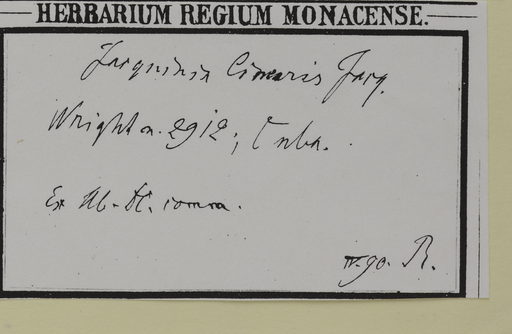 HERBARIUM REGIUM MONACENSE.
Jacquinia linearis Jacq.
Wright n. 2912; Cuba.
Ex
IV.90. R.